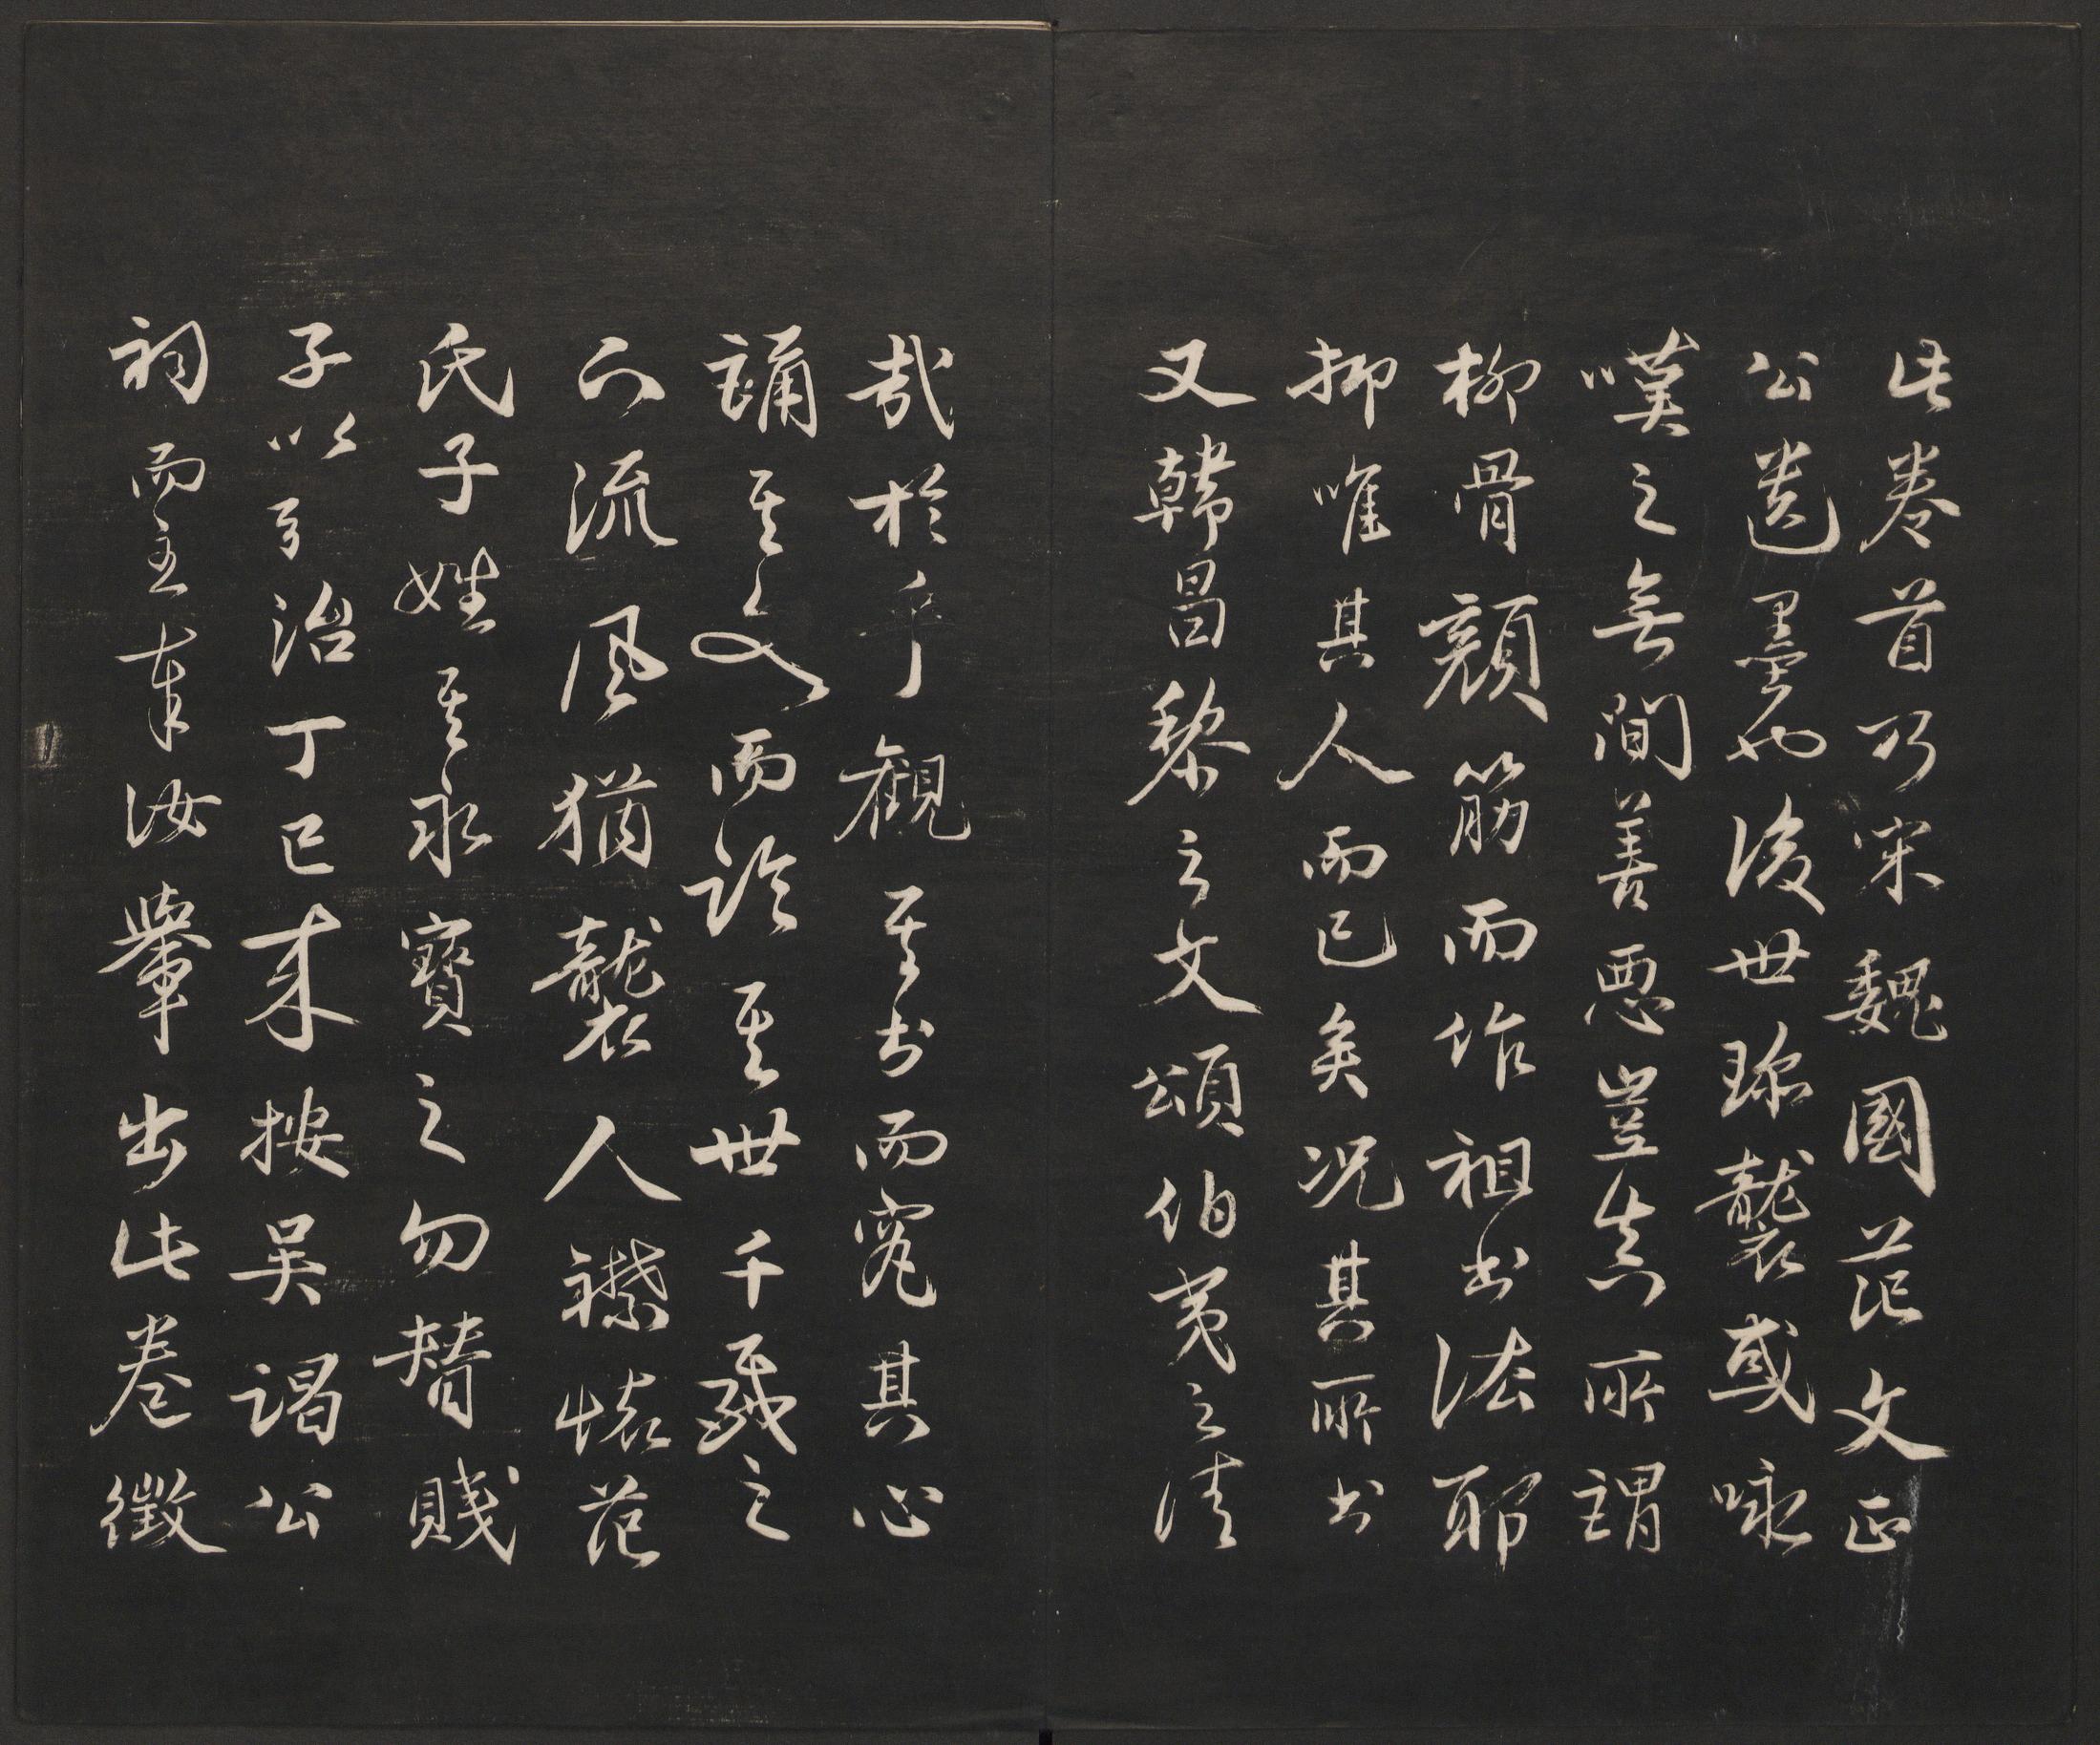 此卷首乃宋魏國范文正
公遺墨也後世珍襲或咏
嘆之無間善惡豈真所謂
柳骨顏筋而作祖書法耶
抑唯其人而已矣況其所書
又韓昌黎之文頌伯夷之清
哉於乎觀其書而究其心
誦其文而論其世千載之
下流風猶襲人襟懷范
氏子姓其永寶之勿替賤
子以弘治丁巳來按吳謁公
祠而主奉汝輩出此卷徵